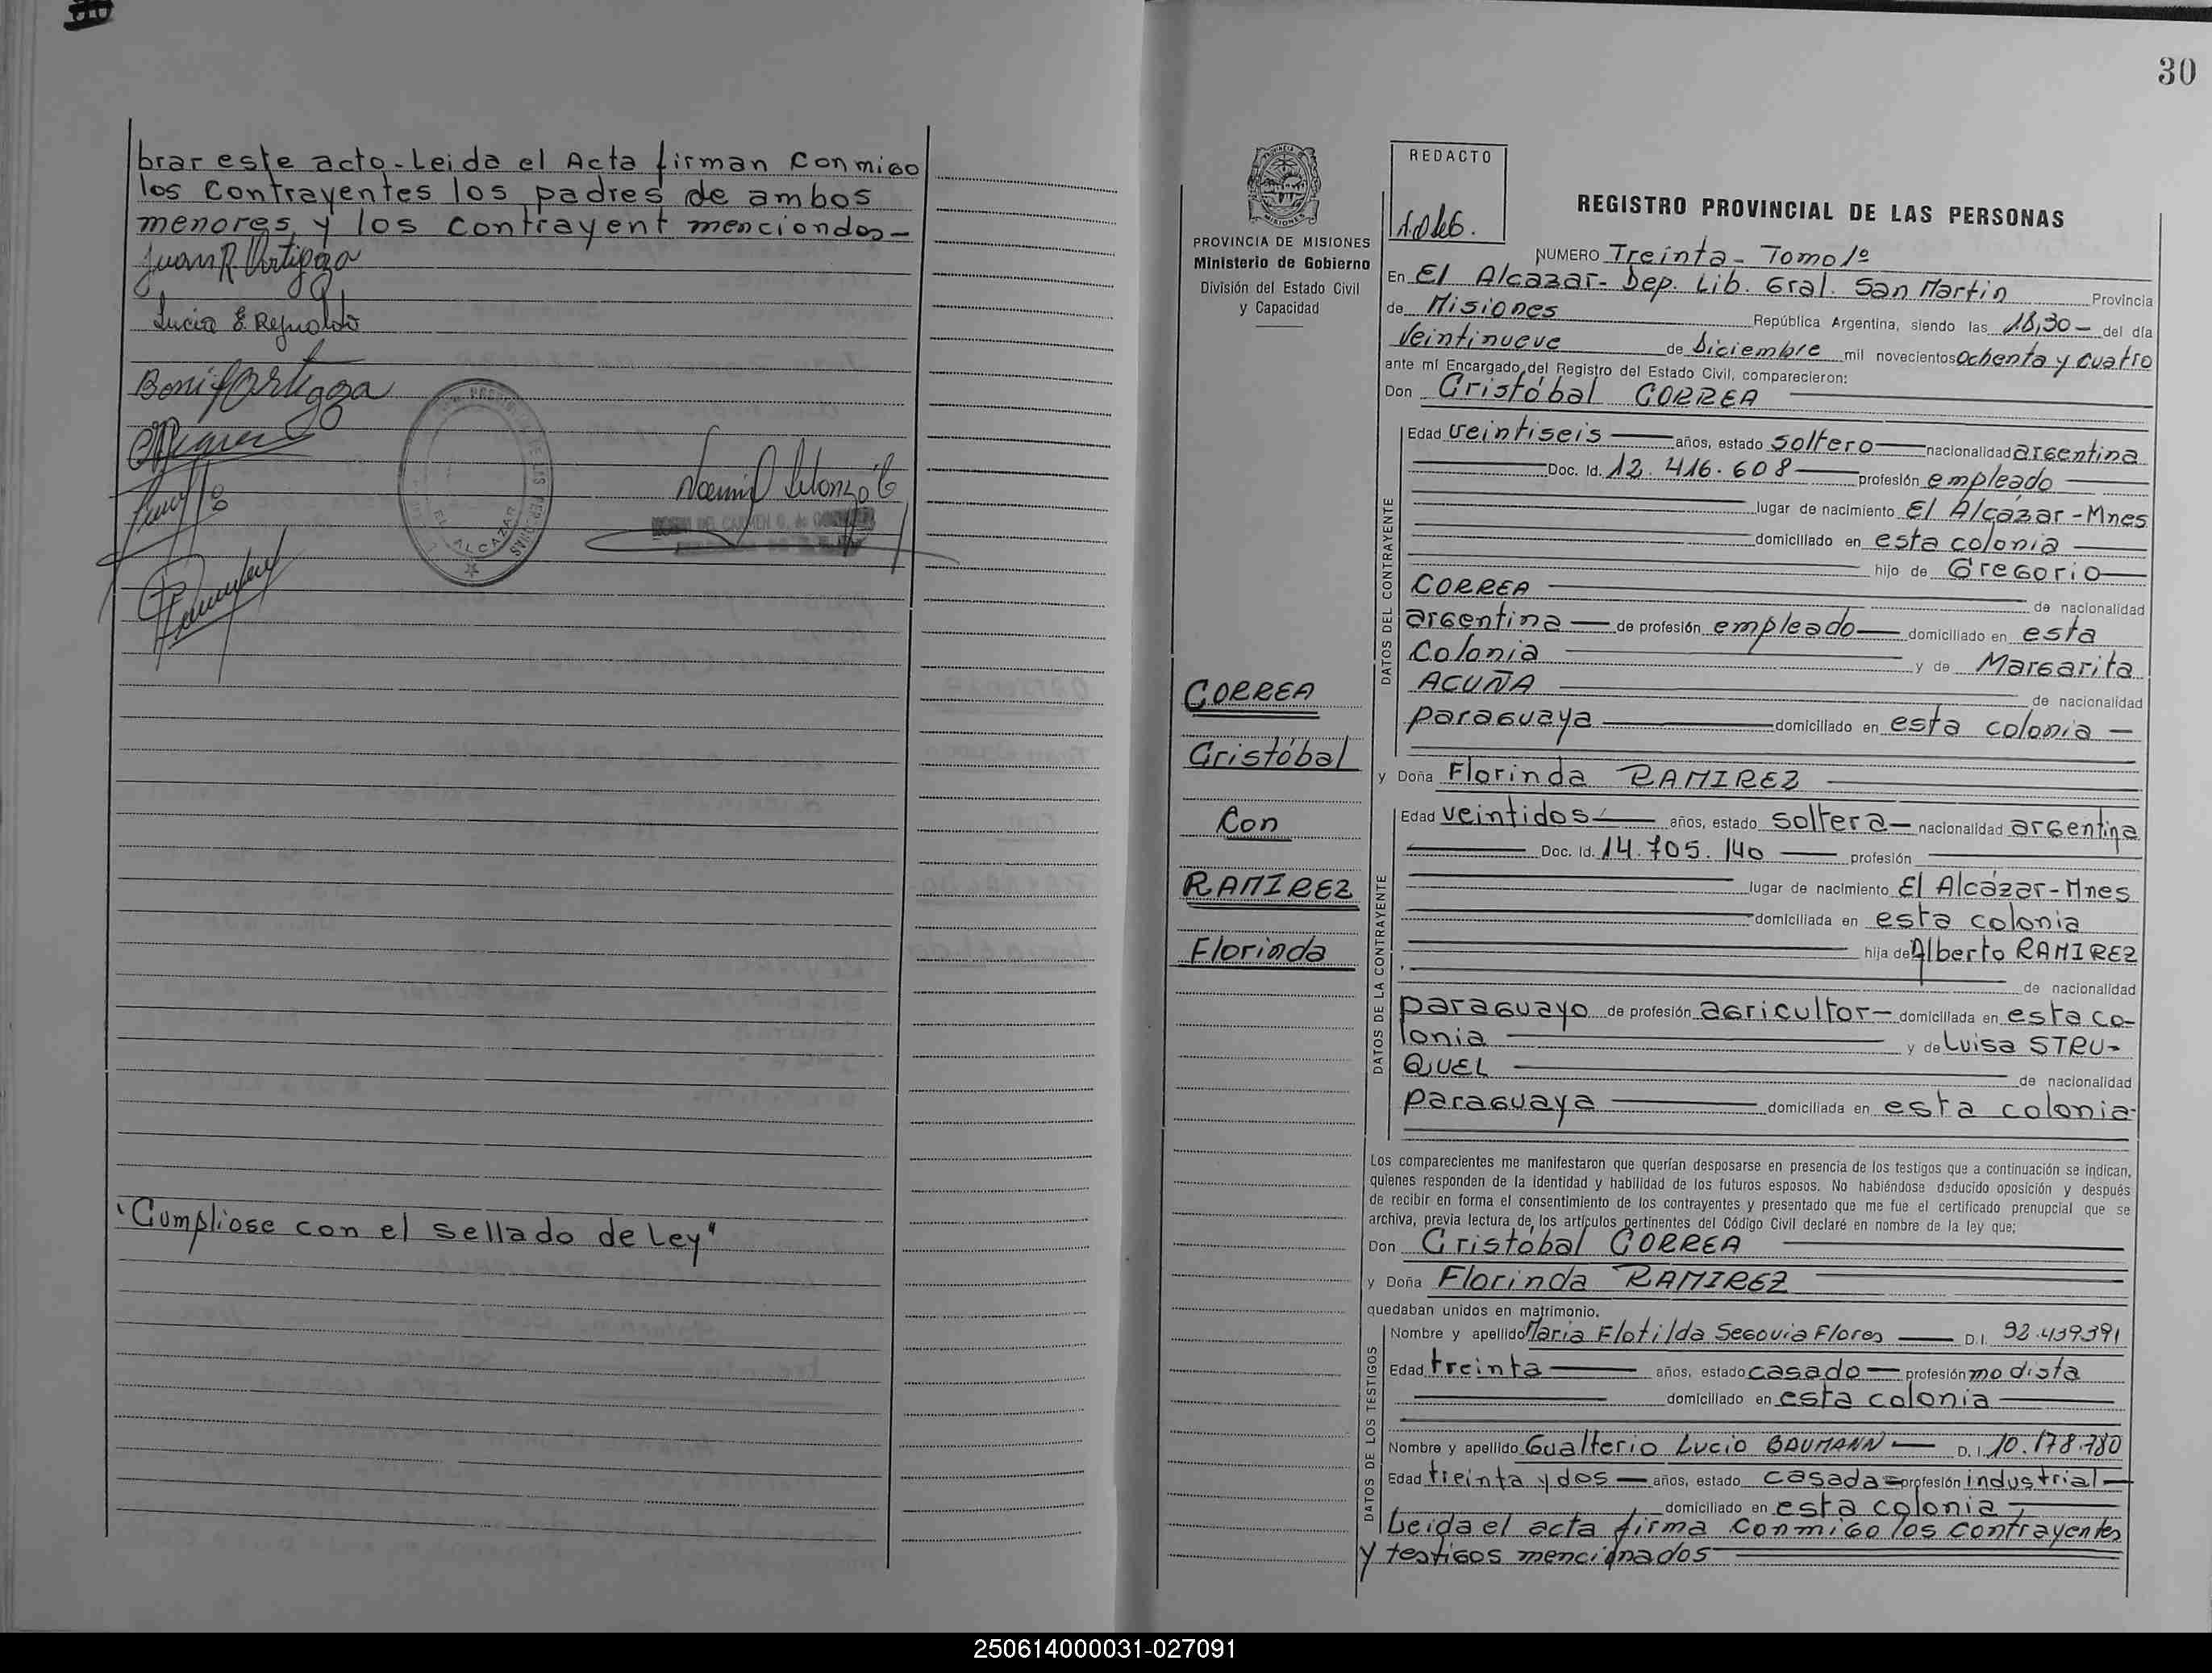 brar este acto-Leida el Acta firman conmigo
los contrayentes los padres de ambos
menores y los contrayent menciondos-
Juan R. Ortigoza
Lucia E. Reynoldo
Bonif Ortigoza
EL ALCAZAR
"Cumpliose con el sellado de Ley"
30
PROVINCIA DE MISIONES
Ministerio de Gobierno
División del Estado Civil
y Capacidad
CORREA
Cristóbal
Con
RAMIREZ
Florinda
REDACTO
REGISTRO PROVINCIAL DE LAS PERSONAS
NUMERO Treinta- Tomo 1º
En El Alcazar- Dep. Lib. Gral. San Martin Provincia
de Misiones República Argentina, siendo las 18,30- del día
Veintinueve de Diciembre mil novecientos Ochenta y cuatro
ante mí Encargado del Registro del Estado Civil, comparecieron:
Don Cristóbal CORREA
DATOS DEL CONTRAYENTE
Edad veintiseis años, estado soltero nacionalidad argentina
Doc. Id. 12.416.608 profesión empleado
lugar de nacimiento El Alcázar-Mnes
domiciliado en esta colonia
hijo de Gregorio
CORREA
de nacionalidad
argentina de profesión empleado domiciliado en esta
Colonia y de Margarita
ACUÑA
de nacionalidad
paraguaya domiciliado en esta colonia
y Doña Florinda RAMIREZ
DATOS DE LA CONTRAYENTE
Edad veintidos años, estado soltera nacionalidad argentina
Doc. Id. 14.705.140 profesión
lugar de nacimiento El Alcázar-Mnes
domiciliada en esta colonia
hija de Alberto RAMIREZ
de nacionalidad
paraguayo de profesión agricultor- domiciliada en esta co-
lonia y de Luisa STRU-
QUEL
de nacionalidad
paraguaya domiciliada en esta colonia-
Los comparecientes me manifestaron que querían desposarse en presencia de los testigos que a continuación se indican,
quienes responden de la identidad y habilidad de los futuros esposos. No habiéndose deducido oposición y después
de recibir en forma el consentimiento de los contrayentes y presentado que me fue el certificado prenupcial que se
archiva, previa lectura de los artículos pertinentes del Código Civil declaré en nombre de la ley que:
Don Cristóbal CORREA
y Doña Florinda RAMIREZ
quedaban unidos en matrimonio.
DATOS DE LOS TESTIGOS
Nombre y apellido Maria Flotilda Segovia Flores D.I. 92.439391
Edad treinta años, estado casado profesión modista
domiciliado en esta colonia
Nombre y apellido Gualterio Lucio BAUMANN D.I. 10.178.780
Edad treinta y dos años, estado casada profesión industrial
domiciliado en esta colonia
Leida el acta firma conmigo los contrayentes
y testigos mencionados
250614000031-027091